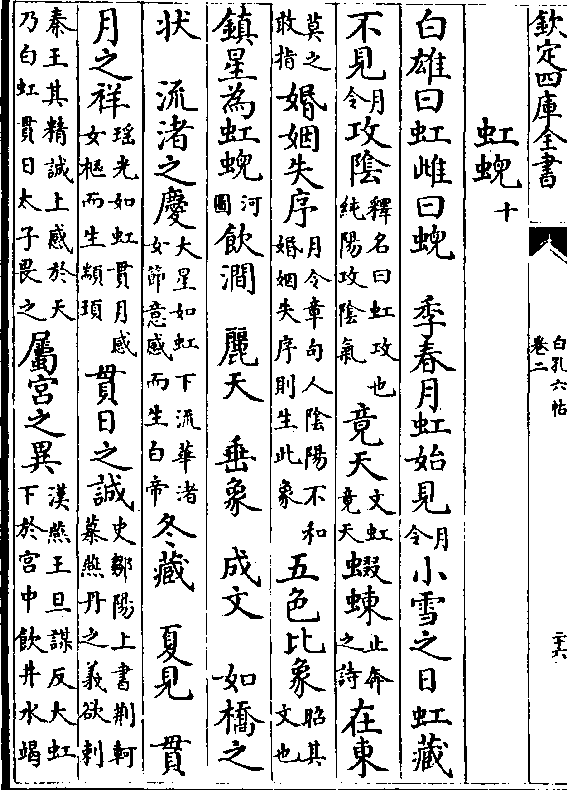 欽定四庫全書
白孔六帖
卷二
虹蜺十
白雄曰虹雌曰蜺 季春月虹始見月令小雪之日虹藏
不見月令攻陰釋名曰虹攻也純陽攻陰氣竟天文虹竟天蝃蝀止奔之詩在東
莫之敢指婚姻失序月令章句人陰陽不和婚姻失序則生此象五色比象昭其文也
鎮星為虹蜺河圖飲澗 麗天 垂象 成文 如橋之
状 流渚之慶大星如虹下流華渚女節意感而生白帝冬藏 夏見 貫
月之祥瑶光如虹貫月感女樞而生顓頊貫日之誠史鄒陽上書荆軻慕燕丹之義欲刺
秦王其精誠上感於天乃白虹貫日太子畏之屬宫之異漢燕王旦謀反大虹下於宫中飲井水竭